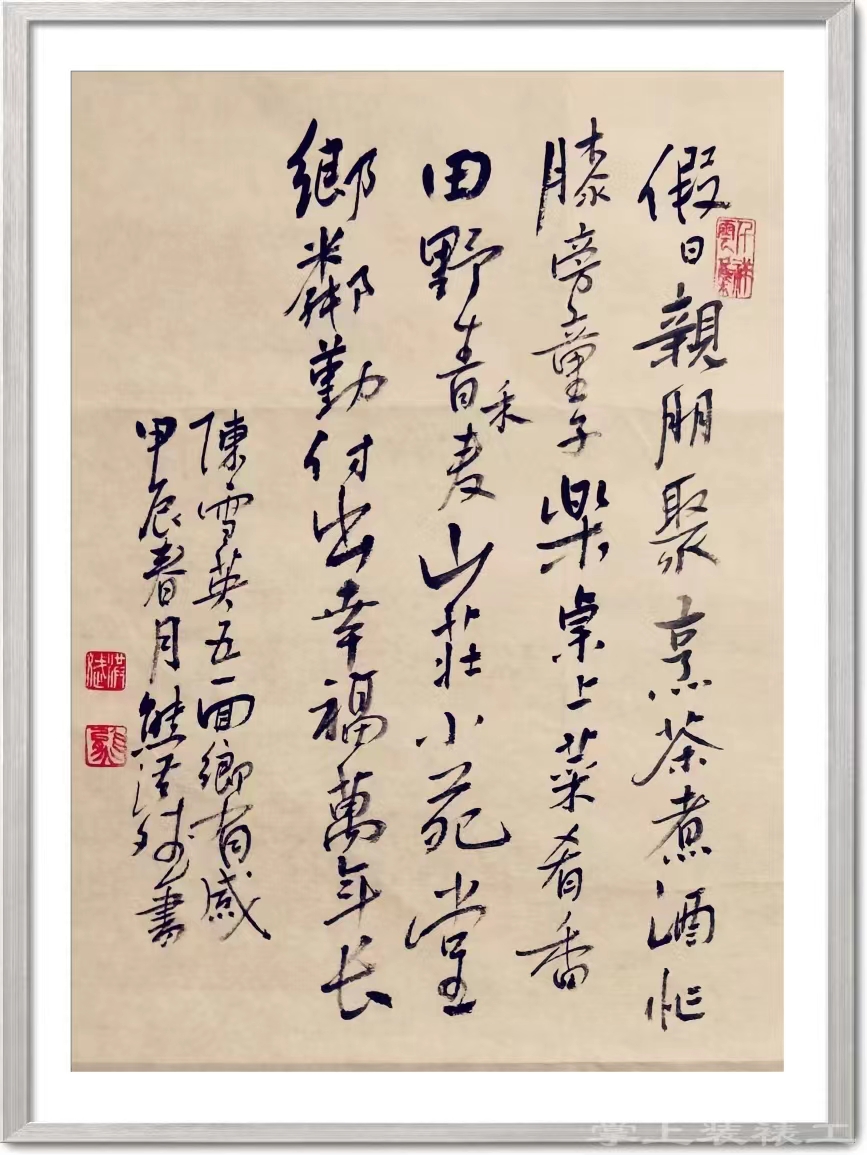 假日親朋聚烹茶煮酒忙
膝旁童子樂桌上菜肴香
田野青禾麦山莊小苑堂
鄉鄰勤付出幸福萬年长
陳雪英五一回鄉有感
甲辰春月熊洪斌書
掌上装裱工